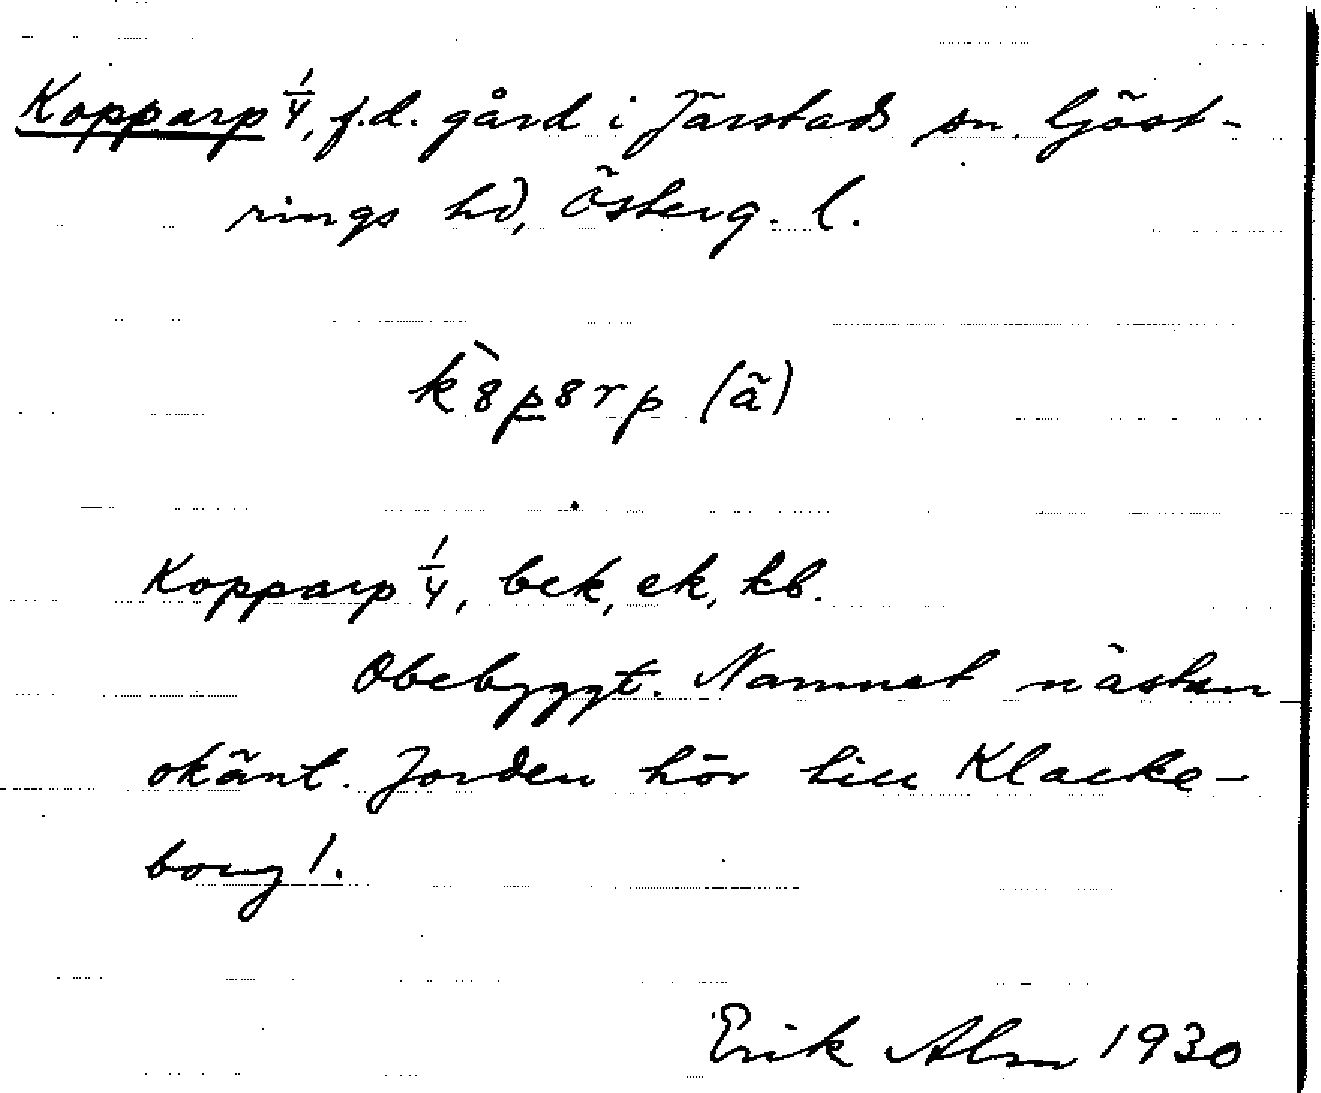 Kopparp 1/4, f.d. gård i Järstads sn. Göst-
rings hd, Österg. l.
k8̀p8rp (ã)
Kopparp 1/4, bek, ek, kb.
Obebyggt. Namnet nästan
okänt. Jorden hör till Klacke-
borg!.
Erik Alm 1930